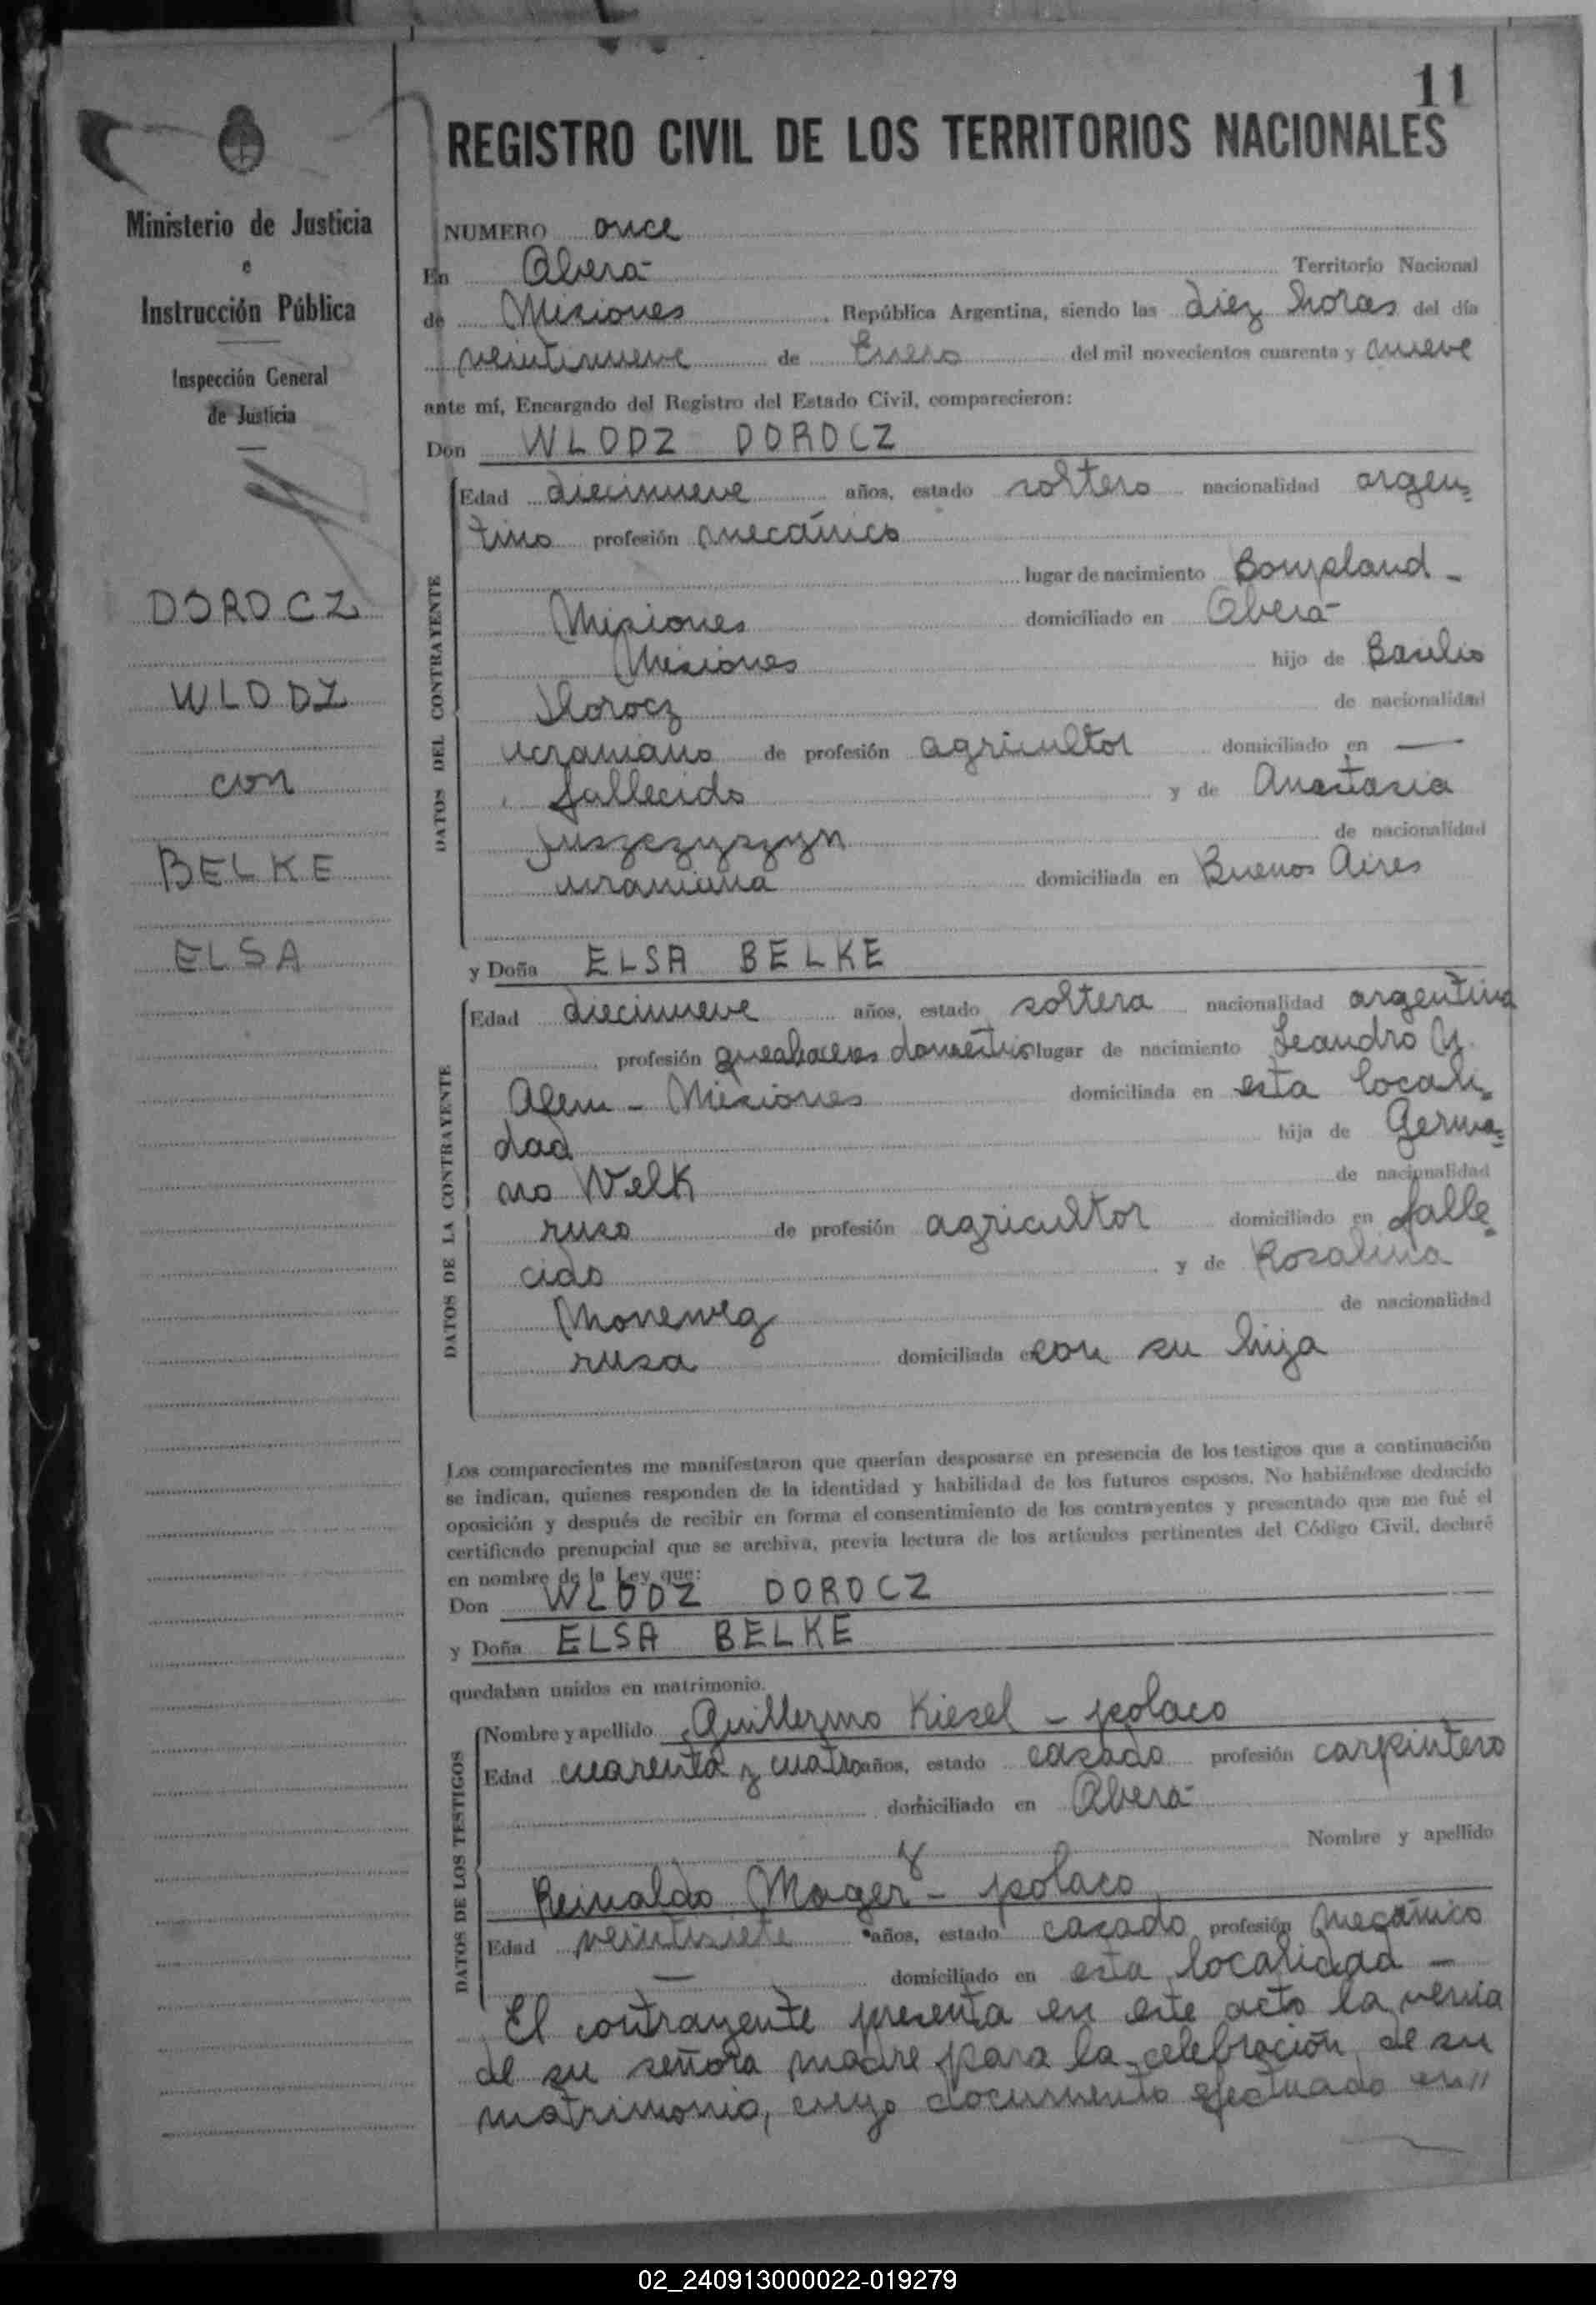 11
REGISTRO CIVIL DE LOS TERRITORIOS NACIONALES
Ministerio de Justicia
e
Instrucción Pública
Inspección General
de Justicia
DOROCZ
WLODZ
con
BELKE
ELSA
NUMERO once
En Oberá Territorio Nacional
de Misiones, República Argentina, siendo las diez horas del día
veintinueve de Enero del mil novecientos cuarenta y nueve
ante mí, Encargado del Registro del Estado Civil, comparecieron:
Don WLODZ DOROCZ
DATOS DEL CONTRAYENTE
Edad diecinueve años, estado soltero nacionalidad argen=
tino profesión mecánico
lugar de nacimiento Bompland -
Misiones domiciliado en Oberá -
Misiones hijo de Basilio
Dorocz de nacionalidad
ucraniano de profesión agricultor domiciliado en —
fallecido y de Anastasia
Juszczyszyn de nacionalidad
ucraniana domiciliada en Buenos Aires
y Doña ELSA BELKE
DATOS DE LA CONTRAYENTE
Edad diecinueve años, estado soltera nacionalidad argentina
profesión quehaceres domésticos lugar de nacimiento Leandro N.
Alem - Misiones domiciliada en esta locali=
dad hija de Germa=
no Welk de nacionalidad
ruso de profesión agricultor domiciliado en falle=
cido y de Rosalina
de nacionalidad
rusa domiciliada en con su hija
Los comparecientes me manifestaron que querían desposarse en presencia de los testigos que a continuación
se indican, quienes responden de la identidad y habilidad de los futuros esposos. No habiéndose deducido
oposición y después de recibir en forma el consentimiento de los contrayentes y presentado que me fué el
certificado prenupcial que se archiva, previa lectura de los artículos pertinentes del Código Civil, declaré
en nombre de la Ley que:
Don WLODZ DOROCZ
y Doña ELSA BELKE
quedaban unidos en matrimonio.
DATOS DE LOS TESTIGOS
Nombre y apellido Guillermo Kiesel - polaco
Edad cuarenta y cuatro años, estado casado profesión carpintero
domiciliado en Oberá -
Nombre y apellido
Reinaldo Mager - polaco
Edad veintisiete años, estado casado profesión mecánico
— domiciliado en esta localidad -
El contrayente presenta en este acto la venia
de su señora madre para la celebración de su
matrimonio, cuyo documento efectuado en//
02_240913000022-019279